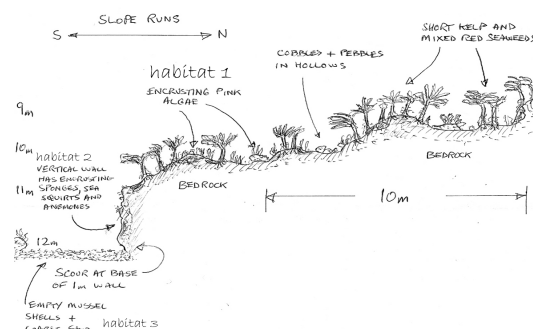 SLOPE RUNS
S N
SHORT KELP AND
MIXED RED SEAWEEDS
COBBLES + PEBBLES
IN HOLLOWS
habitat 1
ENCRUSTING PINK
ALGAE
9m
10m
habitat 2
VERTICAL WALL
HAS ENCRUSTING
SPONGES, SEA
SQUIRTS AND
ANEMONES
11m
BEDROCK
BEDROCK
10m
12m
SCOUR AT BASE
OF 1m WALL
EMPTY MUSSEL
SHELLS +
habitat 3